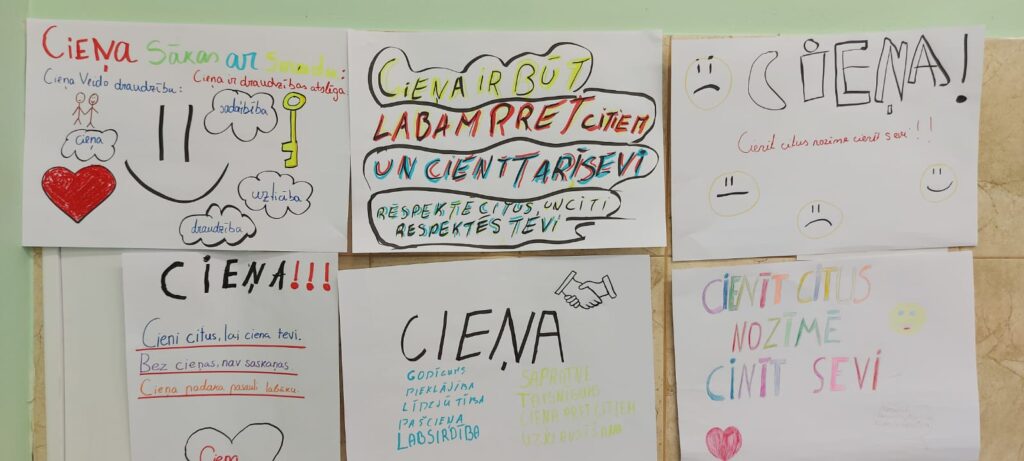 CIEŅA SĀKAS AR
Cieņa Veido draudzību:
Cieņa ir draudzības atslēga
cieņa
sadarbība
uzticība
draudzība
CIEŅA IR BŪT
LABAM PRET CITIEM
UN CIENĪT ARĪ SEVI
RESPEKTĒ CITUS, UN CITI
RESPEKTĒS TEVI
CIEŅA!
Cienīt citus nozīmē cienīt sevi!!
CIEŅA!!!
Cieni citus, lai ciena tevi.
Bez cieņas, nav saskaņas.
Cieņa padara pasauli labāku.
Cieņa
CIEŅA
GODĪGUMS
PIEKLĀJĪBA
LĪDZJŪTĪBA
PAŠCIEŅA
LABSIRDĪBA
SAPRATNE
TAISNĪGUMS
CIEŅA PRET CITIEM
UZKLAUSĪŠANA
CIENĪT CITUS
NOZĪMĒ
CINĪT SEVI